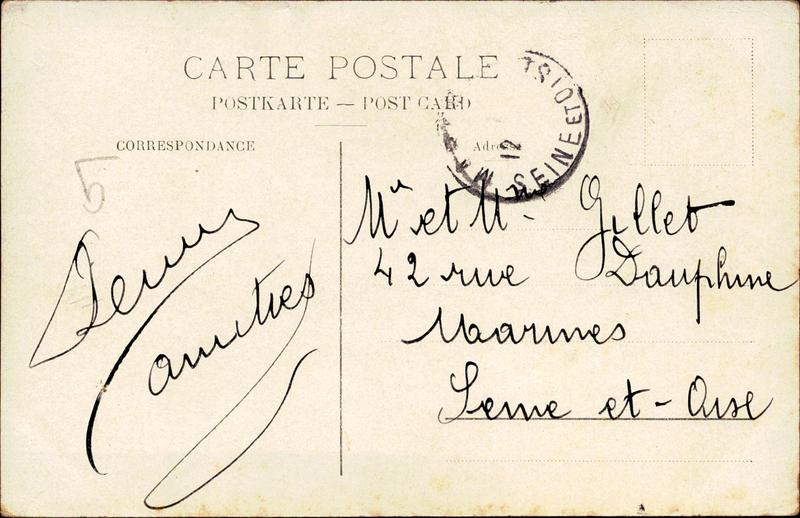 CARTE POSTALE
POSTKARTE — POST CARD
CORRESPONDANCE
Adresse
SEINE ET OISE
12
5
amitiés
Mr et Mme Gillet
42 rue Dauphine
Marines
Seine et-Oise